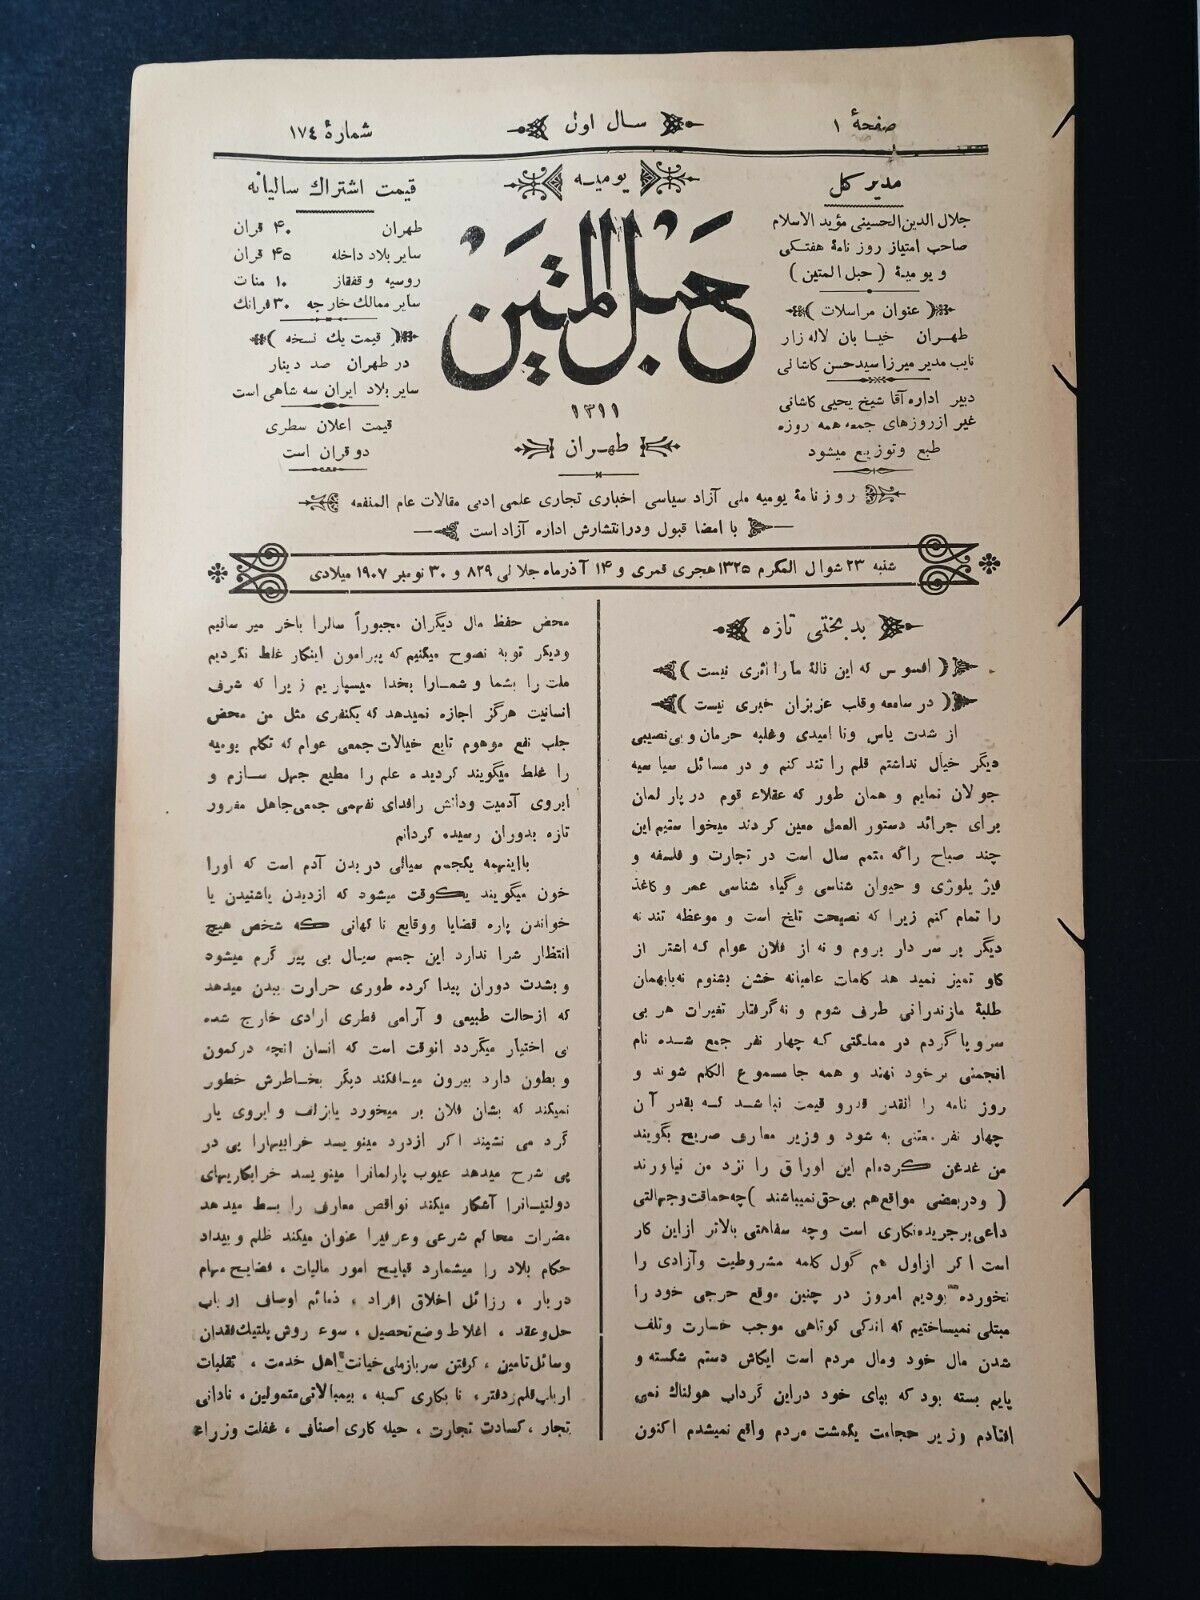 صفحهٔ ۱
سال اول
شمارهٔ ۱۷٤
مدیر کل
جلال الدین الحسینی مؤید الاسلام
صاحب امتیاز روز نامهٔ هفتکی
و یومیهٔ ( حبل المتین )
( عنوان مراسلات )
طهران خیابان لاله زار
نایب مدیر میرزا سید حسن کاشانی
دبیر اداره آقا شیخ یحیی کاشانی
غیر از روزهای جمعه همه روزه
طبع وتوزیع میشود
یومیه
حبل المتین
۱۳۱۱
طهران
قیمت اشتراك سالیانه
طهران ۴۰ قران
سایر بلاد داخله ۴۵ قران
روسیه و قفقاز ۱۰ منات
سایر ممالك خارجه ۳۰ فرانك
( قیمت یك نسخه )
در طهران صد دینار
سایر بلاد ایران سه شاهی است
قیمت اعلان سطری
دو قران است
روزنامهٔ یومیه ملی آزاد سیاسی اخباری تجاری علمی ادبی مقالات عام المنفعه
با امضا قبول ودر انتشارش اداره آزاد است
شنبه ۲۳ شوال المکرم ۱۳۲۵ هجری قمری و ۱۴ آذر ماه جلالی ۸۲۹ و ۳۰ نومبر ۱۹۰۷ میلادی
بد بختی تازه
( افسوس که این نالهٔ ما را اثری نیست )
( در سامعه وقلب عزیزان خبری نیست )
از شدت یاس ونا امیدی وغلبه حرمان و بی نصیبی
دیگر خیال نداشتم قلم را تند کنم و در مسائل سیاسیه
جولان نمایم و همان طور که عقلاء قوم در پارلمان
برای جرائد دستور العمل معین کردند میخواستم این
چند صباح راکه متمم سال است در تجارت و فلسفه و
فیزیلوژی و حیوان شناسی وگیاه شناسی عمر و کاغذ
را تمام کنم زیرا که نصیحت تلخ است و موعظه تند نه
دیگر بر سر دار بروم و نه از فلان عوام که اشتر از
کاو تمیز نمیدهد کلمات عامیانه خشن بشنوم نه بابهمان
طلبهٔ مازندرانی طرف شوم و نه گرفتار تغیرات هر بی
سر و پا گردم در مملکتی که چهار نفر جمع شده نام
انجمنی بر خود نهند و همه جا مسموع الکلم شوند و
روز نامه را انقدر قدر و قیمت نباشد که بقدر آن
چهار نفر معتنی به شود و وزیر معارف صریح بگویند
من غدغن کرده ام این اوراق را نزد من نیاورند
( و در بعضی مواقع هم بی حق نمیباشند ) چه حماقت وجهالتی
داعی بر جریده نگاری است وچه سفاهتی بالاتر از این کار
است اگر از اول هم گول کلمه مشروطیت وآزادی را
نخورده بودیم امروز در چنین موقع حرجی خود را
مبتلی نمیساختیم که اندکی کوتاهی موجب خسارت وتلف
شدن مال خود ومال مردم است ایکاش دستم شکسته و
پایم بسته بود که بپای خود دراین گرداب هولناك نمی
افتادم وزیر حجامت یکمشت مردم واقع نمیشدم اکنون
محض حفظ مال دیگران مجبوراً سالرا باخر میرسانیم
ودیگر توبه نصوح میکنیم که پیرامون اینکار غلط نگردیم
ملت را بشما و شمارا بخدا میسپاریم زیرا که شرف
انسانیت هرگز اجازه نمیدهد که یکنفری مثل من محض
جلب نفع موهوم تابع خیالات جمعی عوام که تکلم یومیه
را غلط میگویند گردیده علم را مطیع جهل سازم و
ابروی آدمیت ودانش رافدای نفهمی جمعی جاهل مغرور
تازه بدوران رسیده گردانم
بااینهمه یکجسم سیالی در بدن آدم است که اورا
خون میگویند یکوقت میشود که ازدیدن یاشنیدن یا
خواندن پاره قضایا ووقایع ناگهانی که شخص هیچ
انتظار شرا ندارد این جسم سیال بی پیر گرم میشود
و بشدت دوران پیدا کرده طوری حرارت ببدن میدهد
که ازحالت طبیعی و آرامی فطری ارادی خارج شده
بی اختیار میگردد انوقت است که انسان انچه درکمون
و بطون دارد بیرون میافکند دیگر بخاطرش خطور
نمیکند که بشان فلان بر میخورد یابزلف و ابروی یار
گرد می نشیند اکر ازدرد مینویسد خرابیهارا پی در
پی شرح میدهد عیوب پارلمانرا مینویسد خرابکاریهای
دولتیانرا آشکار میکند نواقص معارف را بسط میدهد
مضرات محاکم شرعی وعرفیرا عنوان میکند ظلم و بیداد
حکام بلاد را میشمارد قبایح امور مالیات ، فضایح مهام
دربار ، رزائل اخلاق افراد ، ذمائم اوصاف ارباب
حل وعقد ، اغلاط وضع تحصیل ، سوء روش پلتیك فقدان
وسائل تامین ، گرفتن سرباز ملی خیانت اهل خدمت ، تقلبات
ارباب قلم دفتر، نابکاری کسبه ، بیمبالاتی متمولین ، نادانی
تجار ، کسادت تجارت ، حیله کاری اصناف ، غفلت وزراء